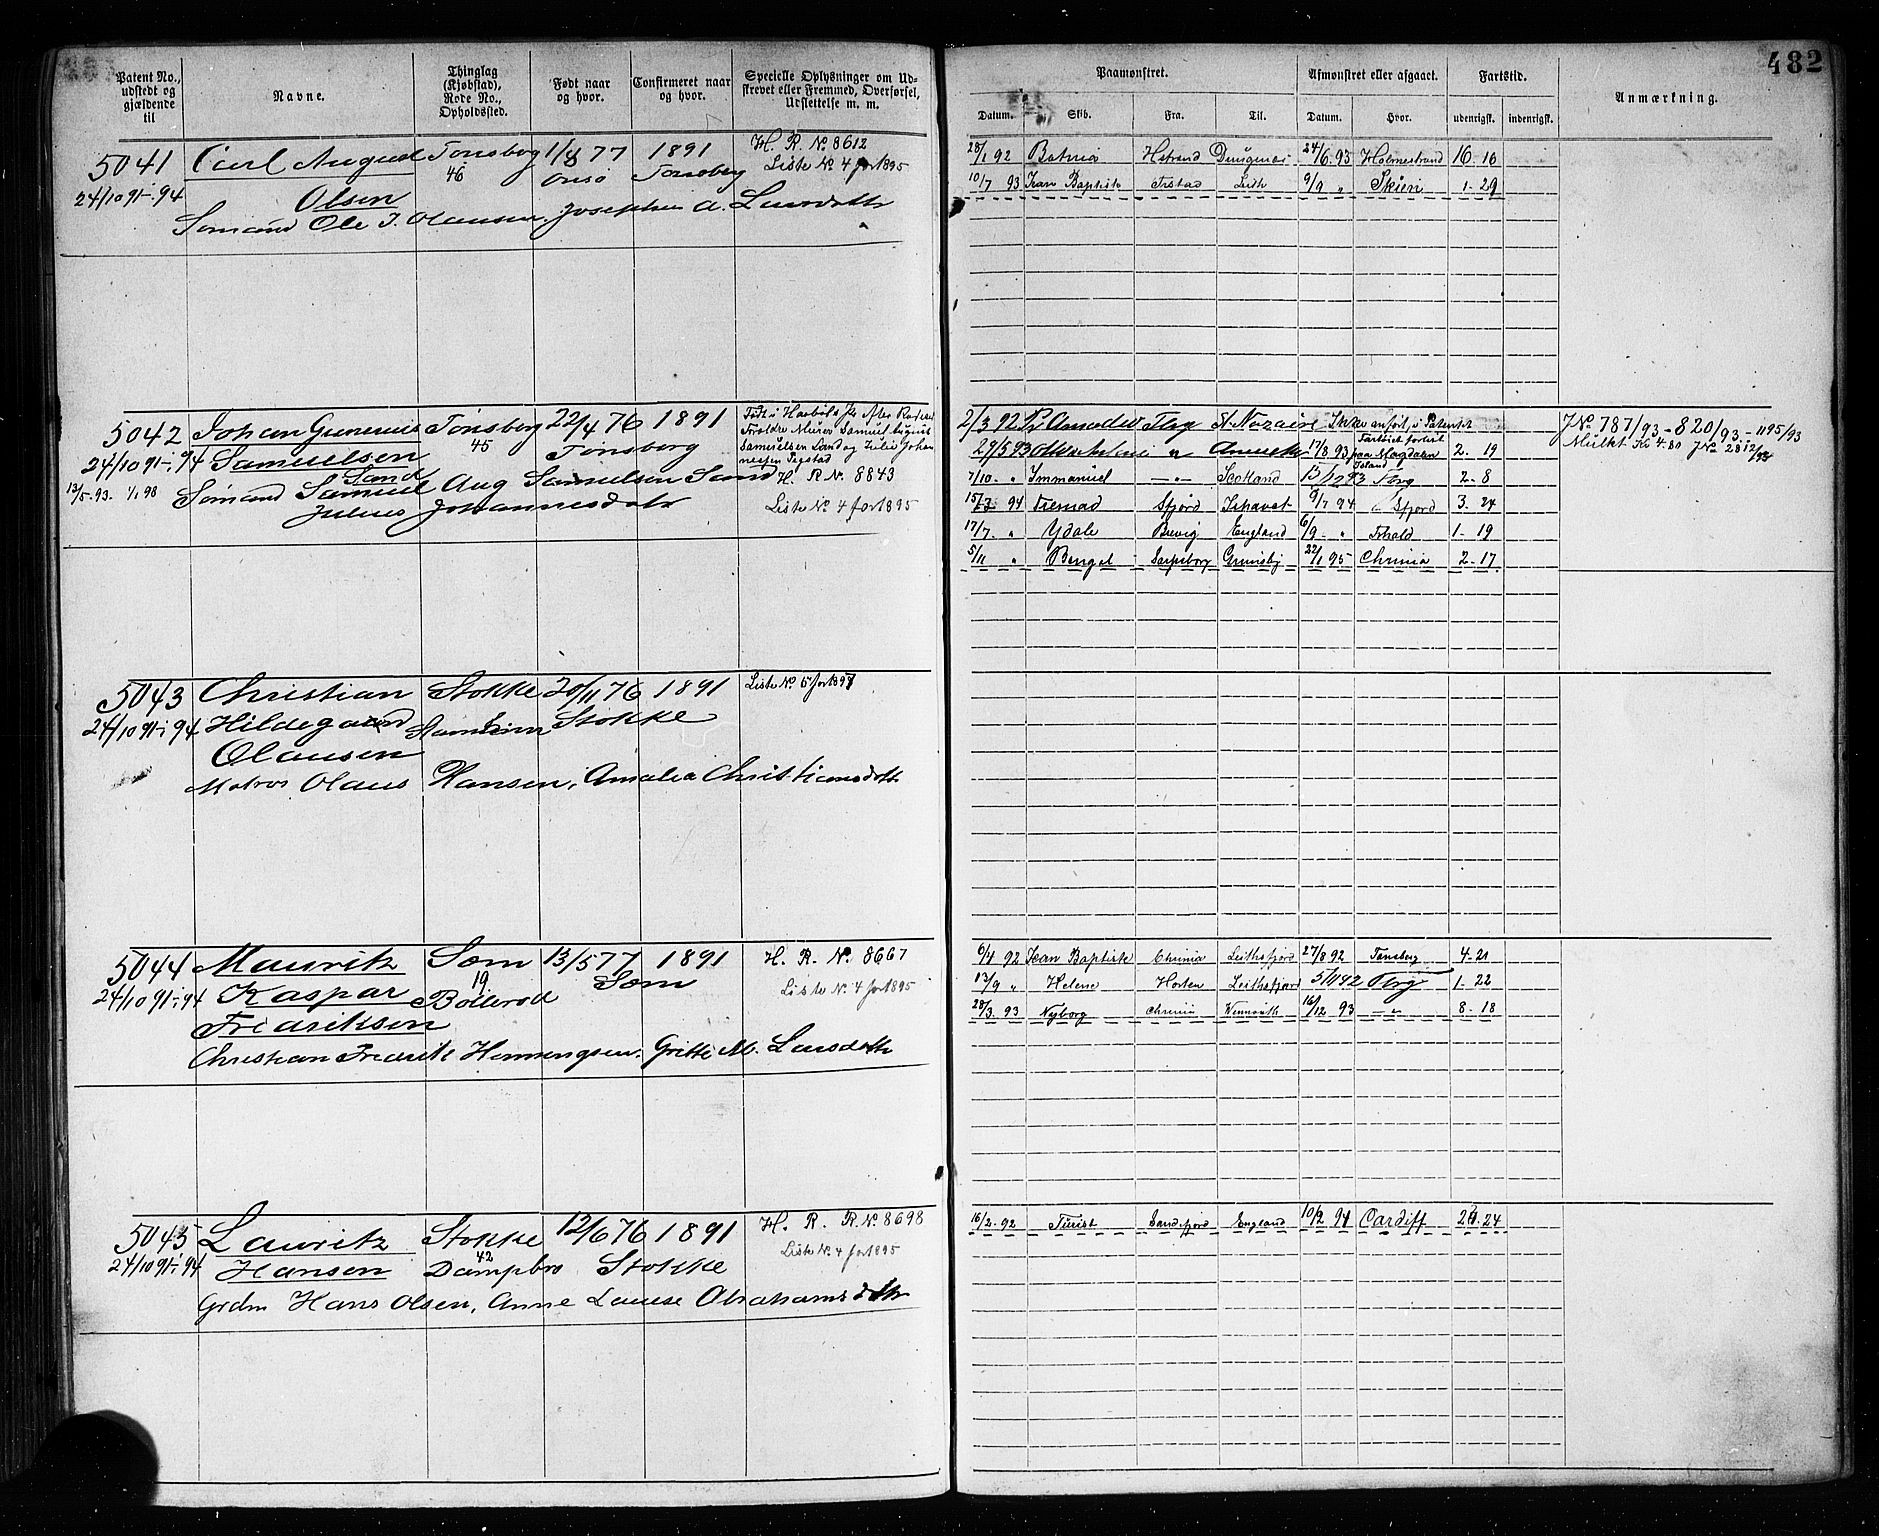 482
Patent No., udstedt og gjældende til
Navne.
Thinglag (Kjøbstad), Rode No., Opholdssted.
Født naar og hvor.
Confirmeret naar og hvor.
Specielle Oplysninger om Udskrevet eller Fremmed, Overførsel, Udslettelse m. m.
Paamønstret.
Afmønstret eller afgaaet.
Fartstid.
Anmærkning.
Datum. Skib. Fra. Til. Datum. Hvor. udenrigsk. indenrigsk.
5041 Carl August Tønsberg 1/8 77 1891 H. R. No 8612
24/10 91-i-94 Olsen 46 Onsø Tønsberg Liste No. 4 for 1895
Sømand Ole J. Olausen. Josephine A. Larsdatter
28/1 92 Hstrand 24/6 93 Holmestrand 16. 16
10/7 93 Jean Baptiste Frstad Leith 9/9 " Skien 1- 29
5042 Johan Gunerius Tønsberg 22/4 76 1891
24/10 91-i-94 Samuelsen 45 Tønsberg
Sand
13/5-93. 1/1 98 Sømand Samuel Aug Samuelsen Sand H. R No. 8843
Julius Johannesdatr Liste No 4 for 1895
2/3 92 Amadeu Tbg St Nazaire Ikke anført i Patentet
29/5 93 " 17/8 93 paa Magdalen Island 2. 19
7/10- " Immanuel -"- Scotland 13/12 93 Tbrg 2- 8
94 Sfjord Ishavet 9/7 94 " Sfjord 3. 24
17/7- " Ydale Brevig England 6/9- " Frhald 1- 19
5/11 " Bengal Sarpsborg Grimsby 22/1 95 Chrnia 2. 17
JNo 787/93 - 820/93 - 1195/93
Mulkt Kr 4.80 JNo 28 12/93
5043 Christian Stokke 20/11 76 1891 Liste No. 5 for 1897
24/10 91-i-94 Hildegaard Stokke
Olausen
Matros Olaus Hansen, Amalia Christiansdatter
5044 Mauritz Sem 13/5 77 1891 H. R. No. 8667
24/10 91-i-94 Kaspar 19 Bollerød Sem Liste No. 4 for 1895
Fredriksen
Christian Fredrik Hemmingsen. Grithe M. Larsdatter
6/4 92 Jean Baptiste Chrnia Leithsfjord 27/8 92 Tønsberg 4-21
13/9 " Helene Horten Leithsfjord 5/11 92 Tbrg 1- 22
28/3. 93 Nyborg Chrnia 16/12 93 -"- 8- 18
5045 Lauritz Stokke 12/6 76 1891 H. R. R. No 8698
24/10 91-i-94 Hansen 42 Dampbro Stokke Liste No. 4 for 1895
Grdm Hans Olsen, Anne Lauise Abrahamsdatr
16/2. 92 Turist Sandefjord England 10/2 94 Cardiff 24